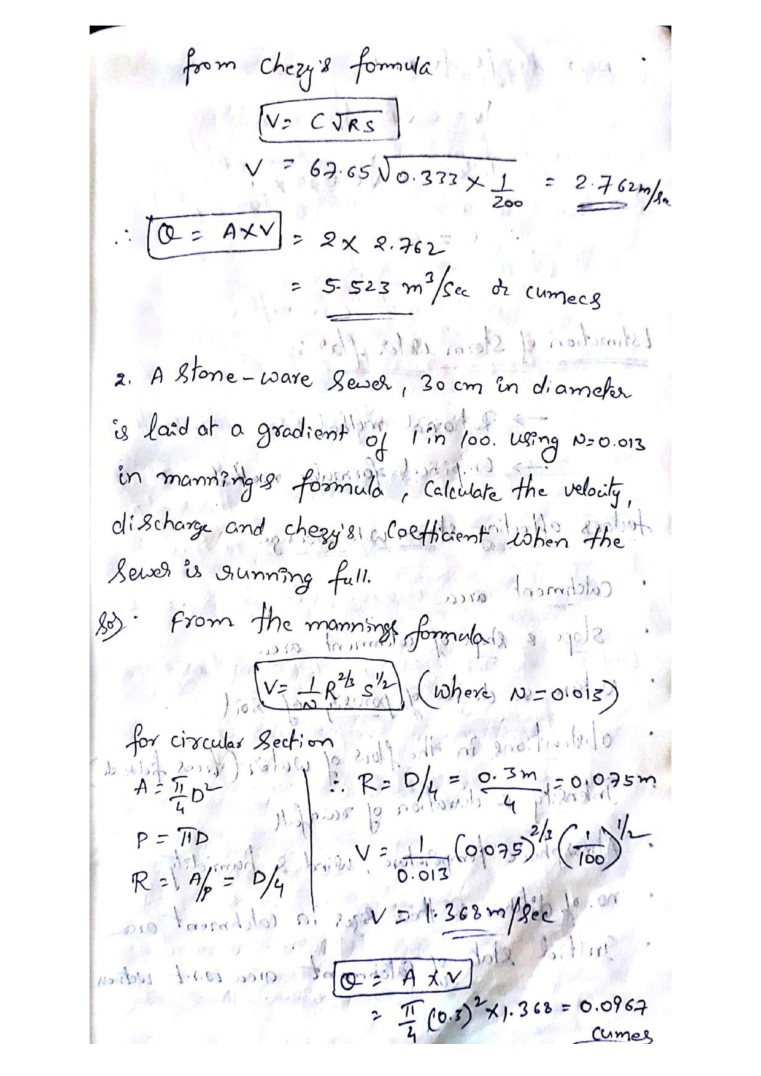 from Chezy's formula
V = C √RS
V = 67.65 √0.333 × 1/200 = 2.762 m/sec
∴ Q = A×V = 2 × 2.762
= 5.523 m³/sec or cumecs
2. A Stone-ware Sewer, 30 cm in diameter
is laid at a gradient of 1 in 100. using N=0.013
in manning's formula, Calculate the velocity,
discharge and chezy's Coefficient when the
Sewer is running full.
Sol. From the mannings formula
V = 1/N R^2/3 S^1/2 (where N = 0.013)
for circular Section
A = π/4 D²
P = πD
R = A/P = D/4
∴ R = D/4 = 0.3m/4 = 0.075m
V = 1/0.013 (0.075)^2/3 (1/100)^1/2
V = 1.368 m/sec
Q = A × V
= π/4 (0.3)² × 1.368 = 0.0967
cumes